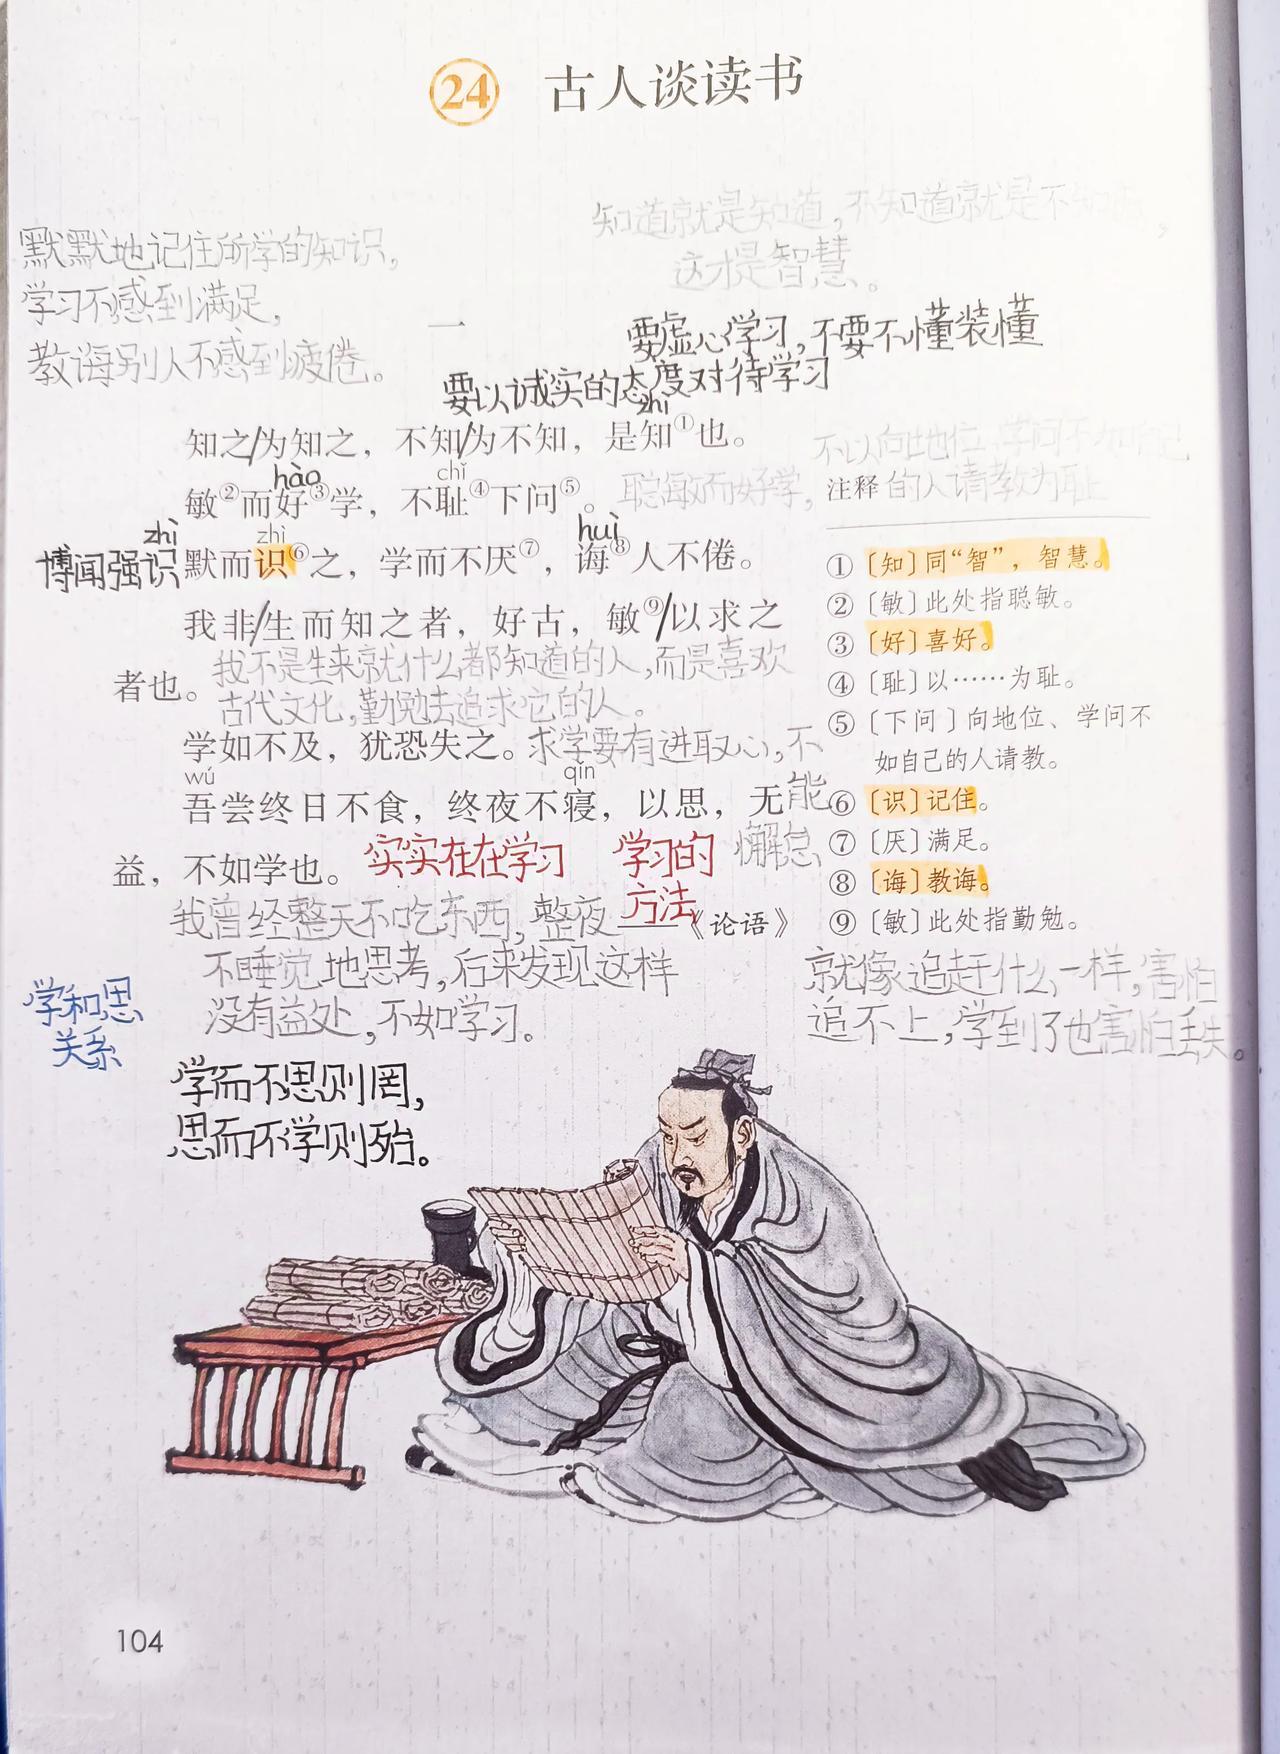 24 古人谈读书
知道就是知道，不知道就是不知道，
这才是智慧。
默默地记住所学的知识，
学习不感到满足，
教诲别人不感到疲倦。
一
要虚心学习，不要不懂装懂
要以诚实的态度对待学习
zhì
知之/为知之，不知/为不知，是知①也。
hào chǐ
敏②而好③学，不耻④下问⑤。聪敏而好学，
不以向比地位、学问不如自己
的人请教为耻
zhì zhì huì
博闻强识
默而识⑥之，学而不厌⑦，诲⑧人不倦。
我非/生而知之者，好古，敏⑨/以求之
者也。
我不是生来就什么都知道的人，而是喜欢
古代文化，勤勉去追求它的人。
学如不及，犹恐失之。求学要有进取心，不
能
懈怠
wú qǐn
吾尝终日不食，终夜不寝，以思，无
益，不如学也。实实在在学习
学习的
方法
——《论语》
我曾经整天不吃东西，整夜
不睡觉地思考，后来发现这样
没有益处，不如学习。
学和思
关系
学而不思则罔，
思而不学则殆。
注释
①〔知〕同“智”，智慧。
②〔敏〕此处指聪敏。
③〔好〕喜好。
④〔耻〕以……为耻。
⑤〔下问〕向地位、学问不
如自己的人请教。
⑥〔识〕记住。
⑦〔厌〕满足。
⑧〔诲〕教诲。
⑨〔敏〕此处指勤勉。
就像追赶什么一样，害怕
追不上，学到了也害怕丢失。
104